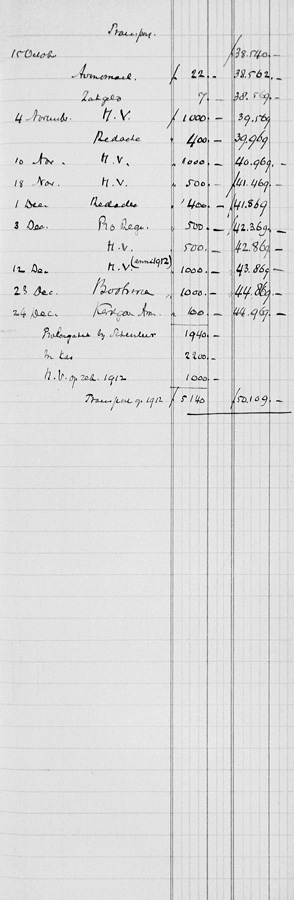 Transport.
15 October ƒ 38.540.-
ƒ 22.- 38.562.-
Zakgeld 7.- 38.569.-
4 November. H.V. ƒ 1000.- 39.569
Redactie " 400.- 39.969
10 Nov. H.V. " 1000.- 40.969.-
18 Nov. H.V. " 500.- ƒ 41.469.-
1 Dec. Redactie " 400.- ƒ 41.869
3 Dec. Pro Rege. " 500.- ƒ 42.369.-
H.V. " 500.- 42.869.-
12 Dec. H.V. (anno 1912) " 1000.- 43.869.-
23 Dec. " 1000.- 44.869.-
24 Dec. " 100.- 44.969.-
by 1940.-
In kas 2200.-
H.V. op rek. 1912 1000.-
Transport op 1912 ƒ 5140 ƒ 50.109.-